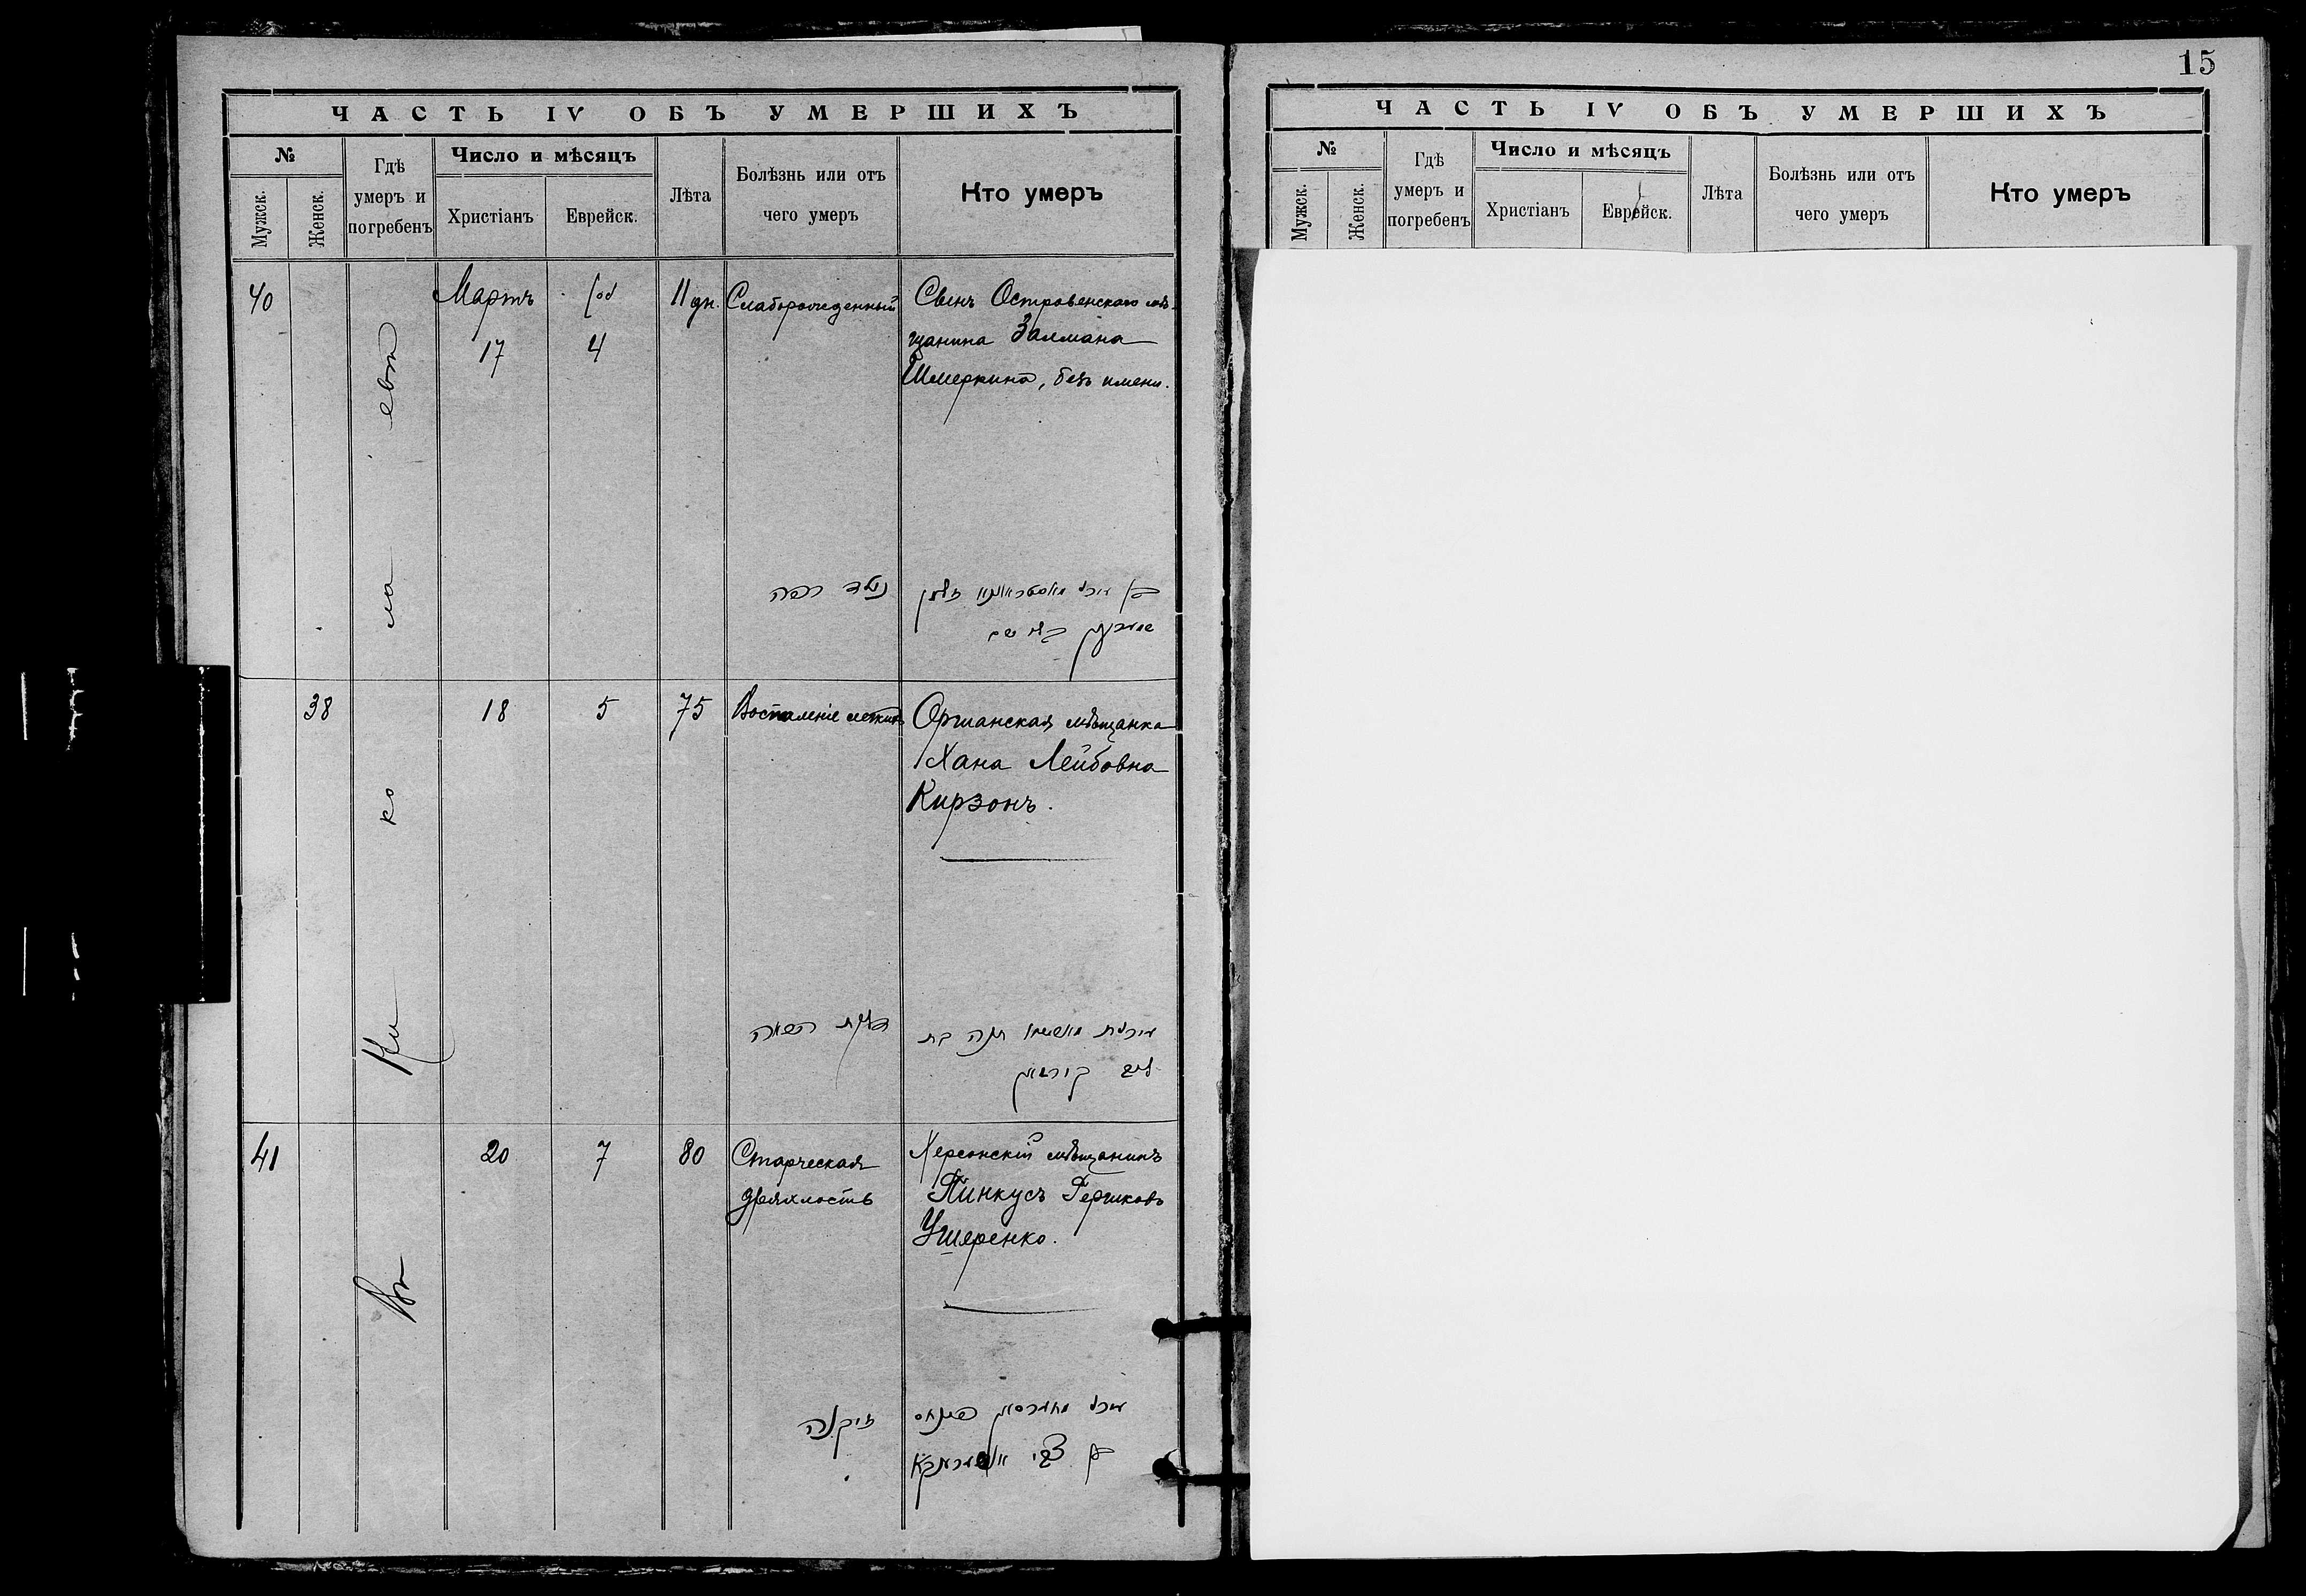 15
ЧАСТЬ IV ОБЪ УМЕРШИХЪ
№
Мужск.
Женск.
Гдѣ
умеръ и
погребенъ
Число и мѣсяцъ
Христіанъ
Еврейск.
Лѣта
Болѣзнь или отъ
чего умеръ
Кто умеръ
Въ Николаевѣ
40
Мартъ
17
4
11 дн.
Слаборожденный
Сынъ Островенскаго мѣ-
щанина Залмана
Шмеркина, безъ имени.
38
18
5
75
Воспаленіе легкихъ
Оршанская мѣщанка
Хана Лейбовна
Кирзонъ.
דלקת הריאה
חנה בת
ליב קירזאן
41
20
7
80
Старческая
дряхлость
Херсонскій мѣщанинъ
Пинкусъ Гершковъ
Ушеренко.
זיקנה
פינחס
בן צבי
ЧАСТЬ IV ОБЪ УМЕРШИХЪ
№
Мужск.
Женск.
Гдѣ
умеръ и
погребенъ
Число и мѣсяцъ
Христіанъ
Еврейск.
Лѣта
Болѣзнь или отъ
чего умеръ
Кто умеръ